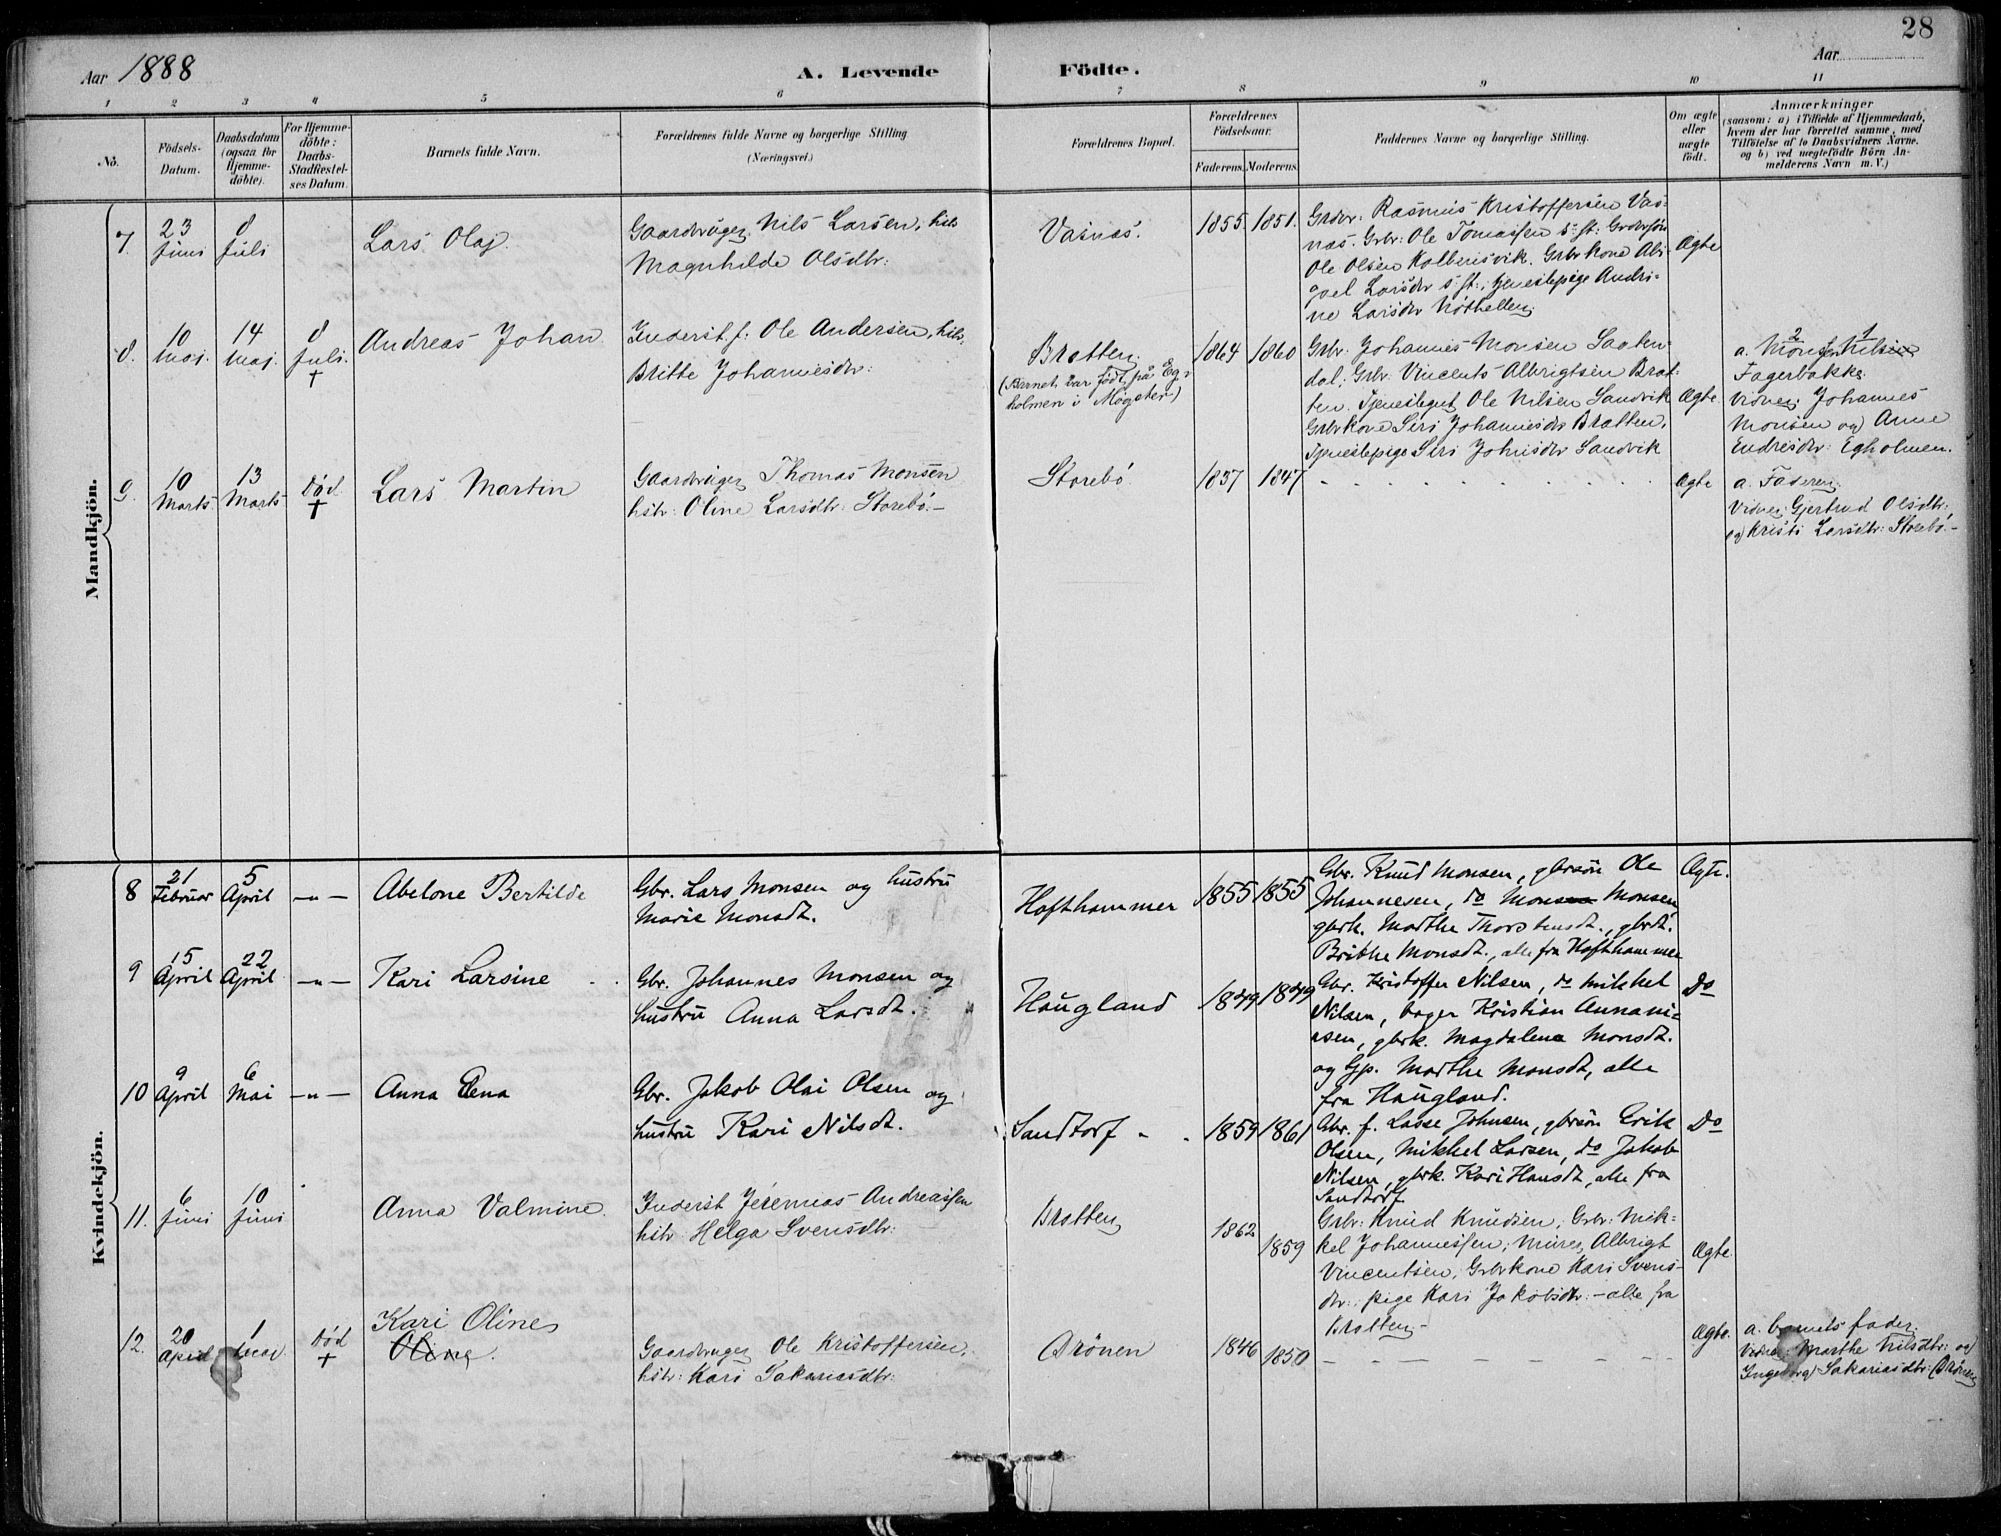 28
Aar 1888
A. Levende Födte.
Aar
1 2 3 4 5 6 7 8 9 10 11
No.
Födsels-Datum.
Daabsdatum (ogsaa for Hjemme-döbte).
For Hjemme-döbte: Daabs-Stadfæstel-ses Datum.
Barnets fulde Navn.
Forældrenes fulde Navne og borgerlige Stilling
(Næringsvei.)
Forældrenes Bopæl.
Forældrenes Födselsaar.
Faderens. Moderens.
Faddernes Navne og borgerlige Stilling.
Om ægte eller uægte födt.
Anmærkninger
(saasom: a) i Tilfælde af Hjemmedaab,
hvem der har forrettet samme, med
Tilföielse af to Daabsvidners Navne.
og b) ved uægtefödte Börn An-
melderens Navn m. V.)
Mandkjön.
7. 23 Juni 8 Juli Lars Olaj.
Gaardbruger Nils Larsen, hstr.
Magnhilde Olsdtr:
Vasnæs. 1855 1851.
Grdbr: Rasmus Kristoffersen Vas-
næs. Grbr: Ole Tomassen s: st: Grdbrsön
Ole Olsen Kolbensvik. Grbrkone Abi-
gael Larsdtr s: st:, tjenestepige Andri-
ne Larsdtr
Ægte
8. 10 Maj. 14 Maj. 8 Juli. † Andreas Johan.
Inderst f. Ole Andersen, hstr.
Britte Johannesdtr:
Bratten.
(Barnet var födt på Eg-
holmen i Møgster)
1864 1860
Grbr. Johannes Monsen Saaten-
dal; Grbr. Vincents Albrigtsen Brat-
ten. Tjenestegut Ole Nilsen Sandvik
Grbrkone Siri Johannesdtr Bratten,
Tjenestepige Siri Johnsdtr Sandvik
Ægte.
a. 2 Monsen 1 Nilsine
Fagerbakke.
Vidner: Johannes
Monsen og Anne
Endresdtr: Egholmen.
9. 10 Marts. 13 Marts Död † Lars Martin
Gaardbruger Thomas Monsen
hstr: Oline Larsdtr: Storebö.-
Storebö 1837 1847
Ægte
a. Faderen.
Vidner: Gjertrud Olsdtr:
og Kristi Larsdtr: Storebö.-
Kvindekjön.
8 21 Februar 5 April -"- Abelone Bertilde
Gbr. Lars Monsen og hustru
Marie Monsdt.
Hofthammer 1855 1855
Gbr. Knud Monsen, gbrsön Ole
Johannesen, do Monsen Monsen,
gbrk. Marthe Thorstensdt., gbrdt.
Brithe Monsdt., alle fra Hofthammer
Ægte.
9 15 April 22 April -"- Kari Larsine
Gbr. Johannes Monsen og
hustru Anna Larsdt.
Haugland 1849 1849
Gbr. Kristoffer Nilsen, do Mikkel
Nilsen, bager Kristian Annani-
asen, gbrk. Magdalena Monsdt.
og Gp. Marthe Monsdt, alle
fra Haugland.
Do
10 9 April 6 Mai -"- Anna Elena
Gbr. Jakob Olai Olsen og
hustru Kari Nilsdt.
Sandtorf 1859 1861
Gbr. f. Lasse Johnsen, gbrsön Erik
Olsen, Mikkel Larsen, do Jakob
Nilsen, gbrk. Kari Hansdt, alle fra
Sandtorf
Do
11. 6 Juni 10 Juni Anna Valmine.
Inderst Jeremias Andreassen
hstr: Helga Svensdtr:
Bratten 1862 1859
Grbr: Knud Knudsen; Grbr: Mik-
kel Johannessen; Murer Albrigt
Vincentsen; Grbrkone Kari Svens-
dtr:; pige Kari Jakobsdtr: - alle fra
Bratten.-
Ægte.
12. 20 April 1 Död † Kari Oline
Oline.
Gaardbruger Ole Kristoffersen,
hstr: Kari Sakariasdtr:
Drönen 1846 1850
Ægte.
a. barnets fader.
Vidner: Marthe Nilsdtr: og
Ingeborg Sakariasdtr: Drönen